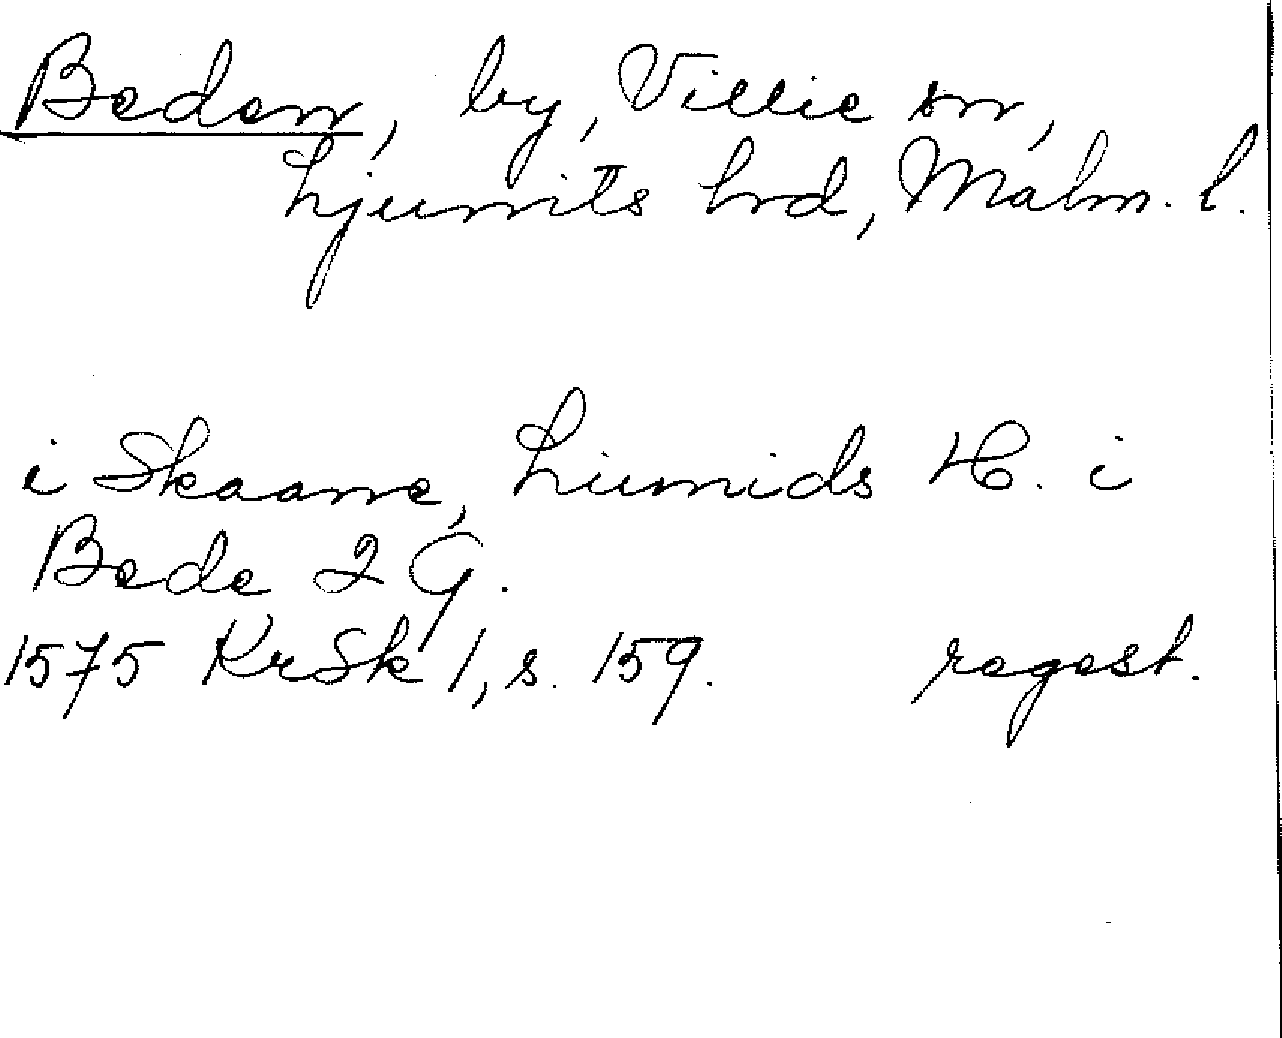 Beden, by, Villie sn,
Ljunits hrd, Malm. l.
i Skaane, Liumids H. i
Bede 2 G.
1575 KrSk 1, s. 159. regest.